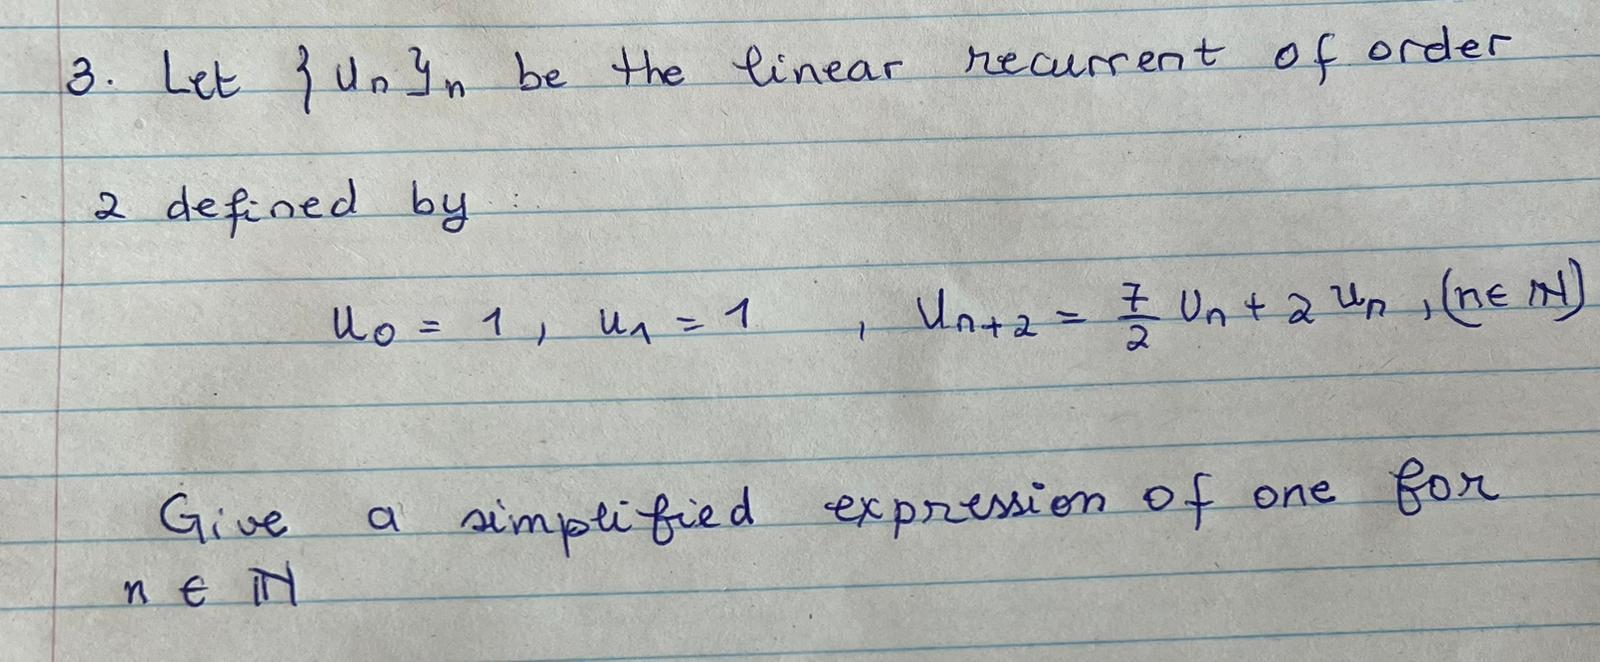 3. Let {Un}n be the linear recurrent of order
2 defined by :
u0 = 1, u1 = 1 , Un+2 = 7/2 Un + 2 Un , (n ∈ ℕ)
Give a simplified expression of one for
n ∈ ℕ